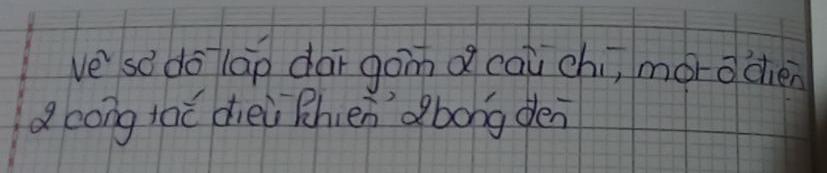 vẽ sơ đồ lắp đặt gồm 2 cầu chì, một ổ điện
2 công tắc điều khiển 2 bóng đèn